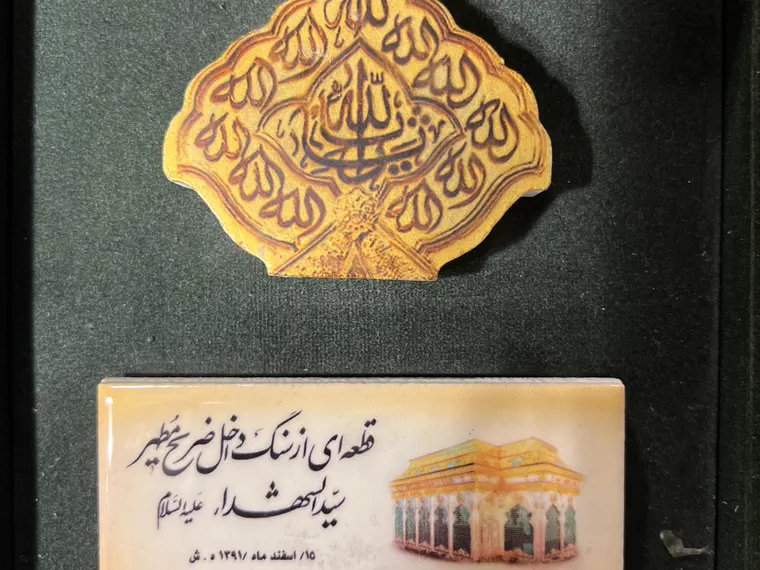 الله
الله
الله
الله
الله
الله
الله
الله
الله
الله
الله
الله
الله
قطعه‌ای از سنگ داخل ضریح مطهر
سیّد الشهداء علیه‌السلام
۱۵/ اسفند ماه /۱۳۹۱ ه . ش